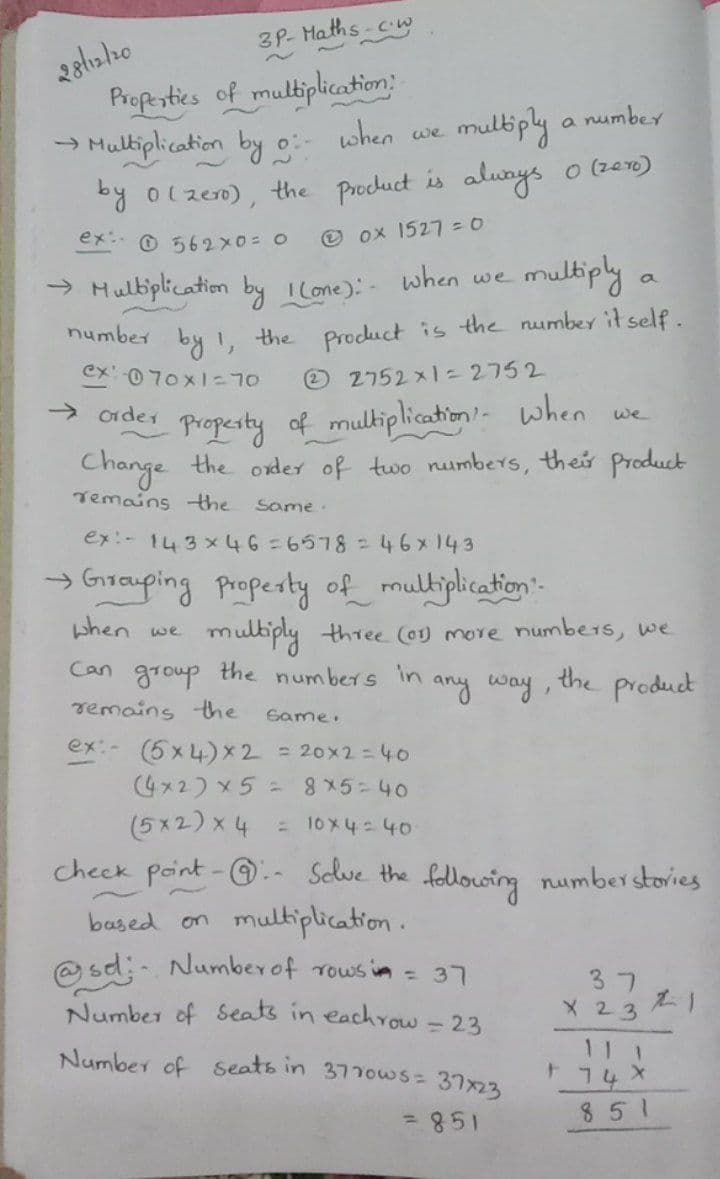 28/12/20
3P- Maths - C.W
Properties of multiplication:
→ Multiplication by 0:- when we multiply a number
by 0 (zero), the product is always 0 (zero)
ex:- ① 562x0= 0 ② 0x 1527 = 0
→ Multiplication by 1 (one):- when we multiply a
number by 1, the product is the number itself.
ex:- ① 70x1=70 ② 2752x1=2752
→ order property of multiplication:- When we
Change the order of two numbers, their product
remains the same.
ex:- 143x46=6578=46x143
→ Grouping property of multiplication:-
When we multiply three (or) more numbers, we
Can group the numbers in any way, the product
remains the same.
ex:- (5x4)x2 = 20x2=40
(4x2) x 5 = 8x5=40
(5x2) x 4 = 10x4=40
Check point - ⑨:- Solve the following number stories
based on multiplication.
ⓐ sol:- Number of rows = 37
Number of Seats in each row = 23
Number of seats in 37 rows = 37x23
= 851
37
x 23 2 1
111
+ 74x
851